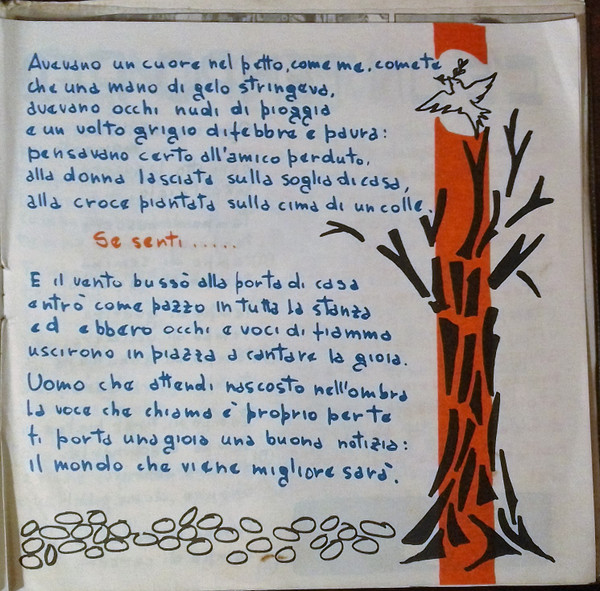 Avevano un cuore nel petto, come me, come te
che una mano di gelo stringeva,
avevano occhi nudi di pioggia
e un volto grigio di febbre e paura:
pensavano certo all'amico perduto,
alla donna lasciata sulla soglia di casa,
alla croce piantata sulla cima di un colle.
Se senti.....
E il vento bussò alla porta di casa
entrò come pazzo in tutta la stanza
ed ebbero occhi e voci di fiamma
uscirono in piazza a cantare la gioia.
Uomo che attendi nascosto nell'ombra
la voce che chiama è proprio per te
ti porta una gioia una buona notizia:
il mondo che viene migliore sarà.